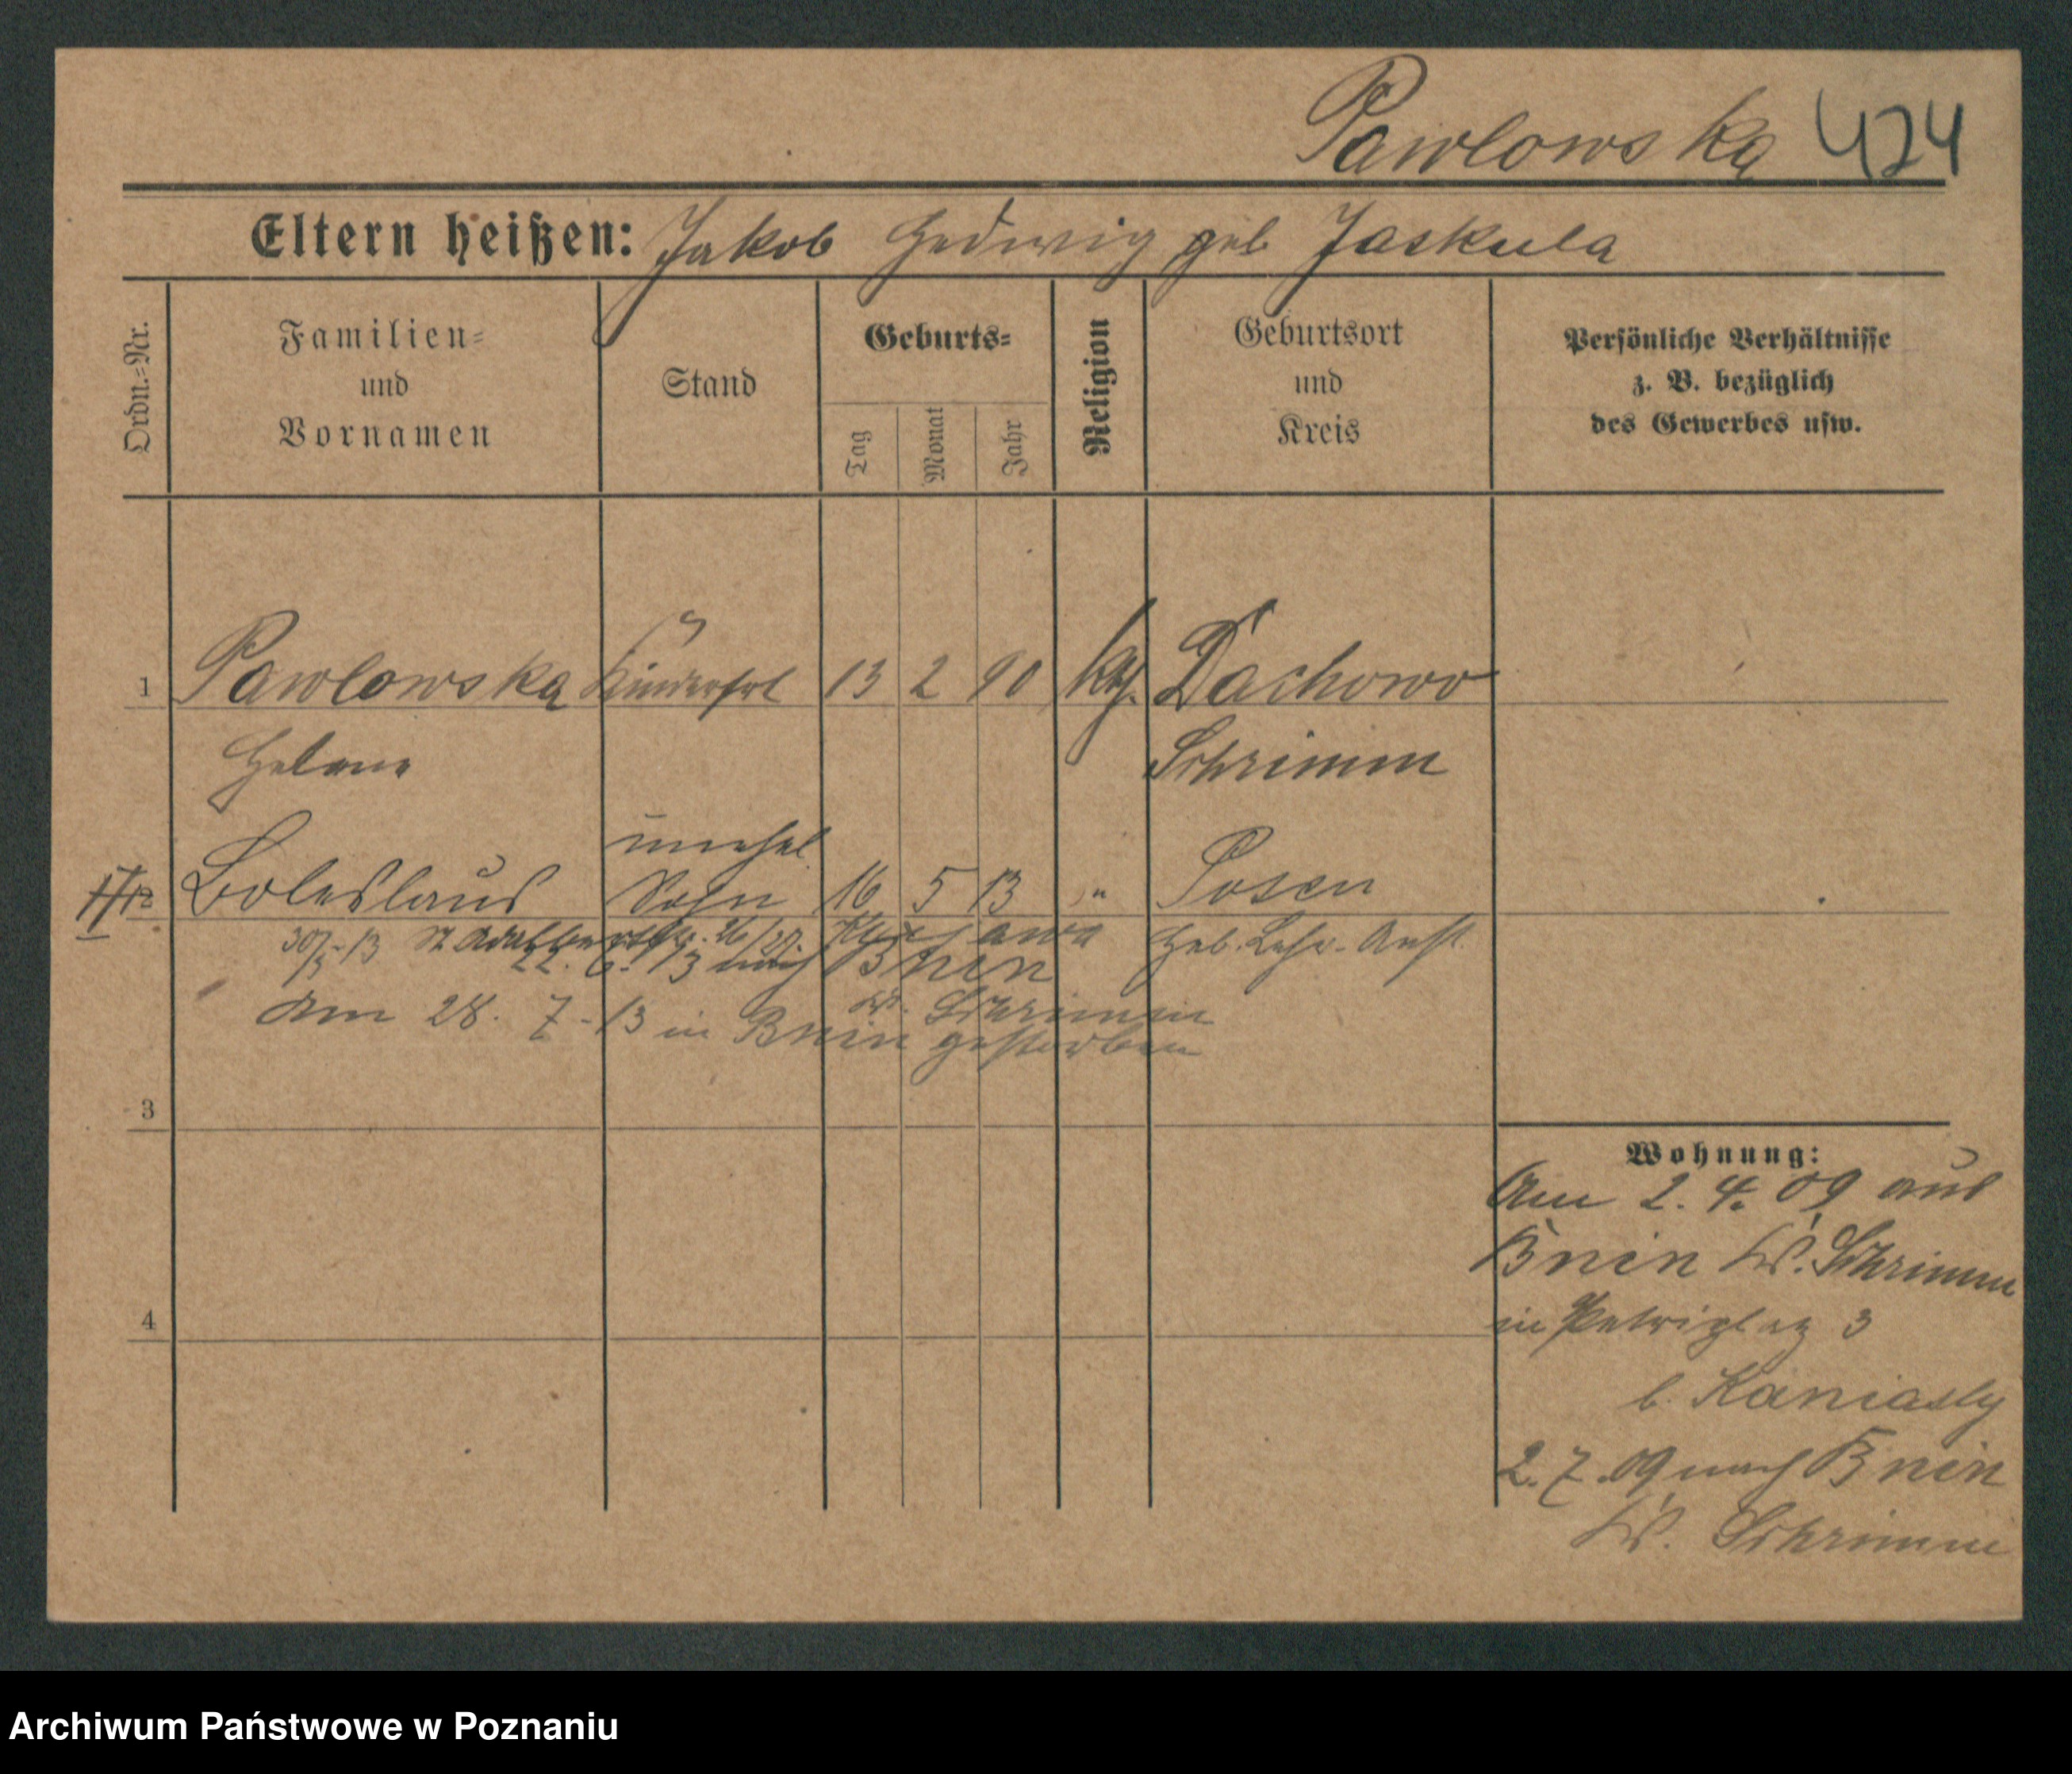 Pawlowska 424
Eltern heißen: Jakob Hedwig geb Jaskula
Ordn.=Nr.
Familien=
und
Vornamen
Stand
Geburts=
Tag
Monat
Jahr
Religion
Geburtsort
und
Kreis
Persönliche Verhältnisse
z. B. bezüglich
des Gewerbes usw.
1 Pawlowska Kinderfrl 13 2 90 kth. Dachowo
Helene Schrimm
unehel.
Boleslaus Sohn 16 5 13 " Posen
30/5-13 St Adalbertstr. 26/27. Heb. Lehr-Anst.
22. 6. 13 nach Bnin
Kr. Schrimm
am 28. 7-13 in Bnin gestorben
3
4
Wohnung:
Am 2. 4. 09 aus
Bnin Kr. Schrimm
in Petriplatz 3
b. Kaniasty
2. 7. 09 nach Bnin
Kr. Schrimm
Archiwum Państwowe w Poznaniu